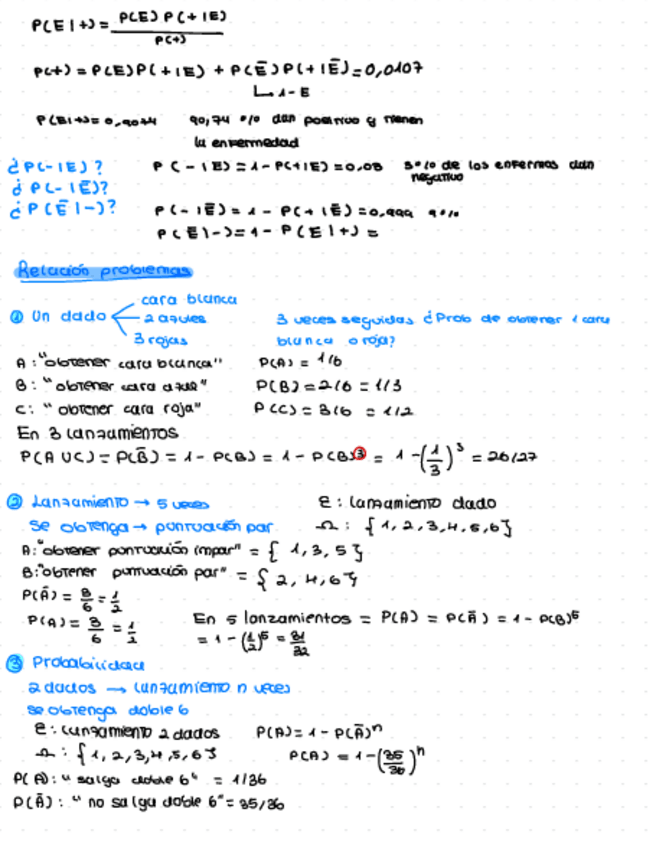 P(E|+) = P(E) P(+|E) / P(+)
P(+) = P(E)P(+|E) + P(Ē)P(+|Ē) = 0,0107
↳ 1-E
P(E|+) = 0,9074 90,74 % dan positivo y tienen
la enfermedad
¿P(-|E)? P(-|E) = 1 - P(+|E) = 0,03 3% de los enfermos dan
negativo
¿P(-|Ē)?
¿P(Ē|-)? P(-|Ē) = 1 - P(+|Ē) = 0,999
P(Ē|-) = 1 - P(E|+) =
Relación problemas
① Un dado cara blanca
2 azules
3 rojas
3 veces seguidas ¿Prob de obtener 1 cara
blanca o roja?
A: "obtener cara blanca" P(A) = 1/6
B: "obtener cara azul" P(B) = 2/6 = 1/3
C: "obtener cara roja" P(C) = 3/6 = 1/2
En 3 lanzamientos
P(A ∪ C) = P(B̄) = 1 - P(B) = 1 - P(B)³ = 1 - (1/3)³ = 26/27
② Lanzamiento → 5 veces E: lanzamiento dado
se obtenga → puntuación par Ω: {1,2,3,4,5,6}
A: "obtener puntuación impar" = {1,3,5}
B: "obtener puntuación par" = {2,4,6}
P(Ā) = 3/6 = 1/2
P(A) = 3/6 = 1/2 En 5 lanzamientos = P(A) = P(Ā) = 1 - P(B)⁵
= 1 - (1/2)⁵ = 31/32
③ Probabilidad
2 dados → lanzamiento n veces
se obtenga doble 6
E: lanzamiento 2 dados P(A) = 1 - P(Ā)ⁿ
Ω: {1,2,3,4,5,6} P(A) = 1 - (35/36)ⁿ
P(A): "salga doble 6" = 1/36
P(Ā): "no salga doble 6" = 35/36